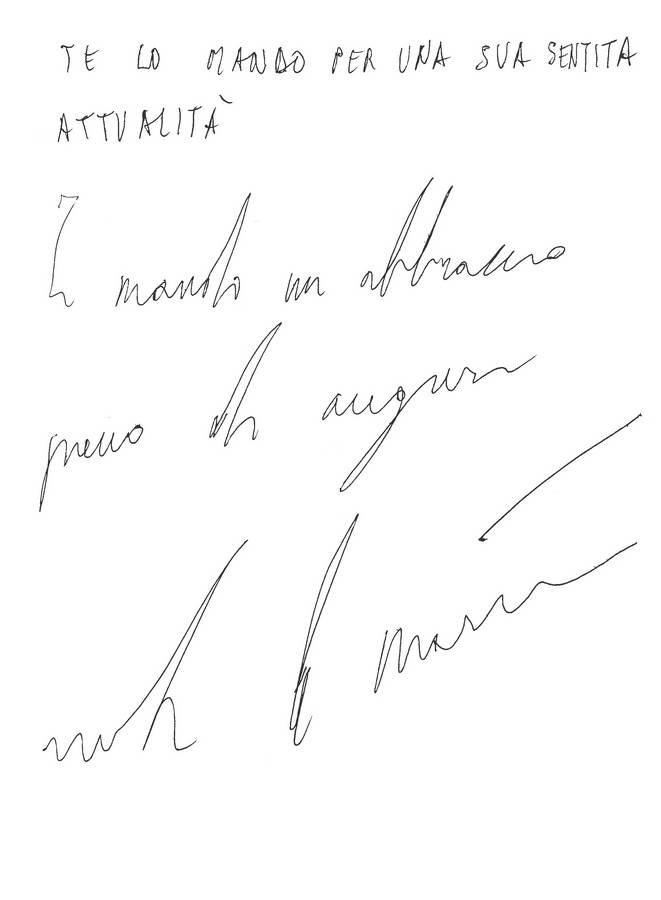 TE LO MANDO PER UNA SUA SENTITA
ATTUALITÀ
Ti mando un abbraccio
pieno di auguri